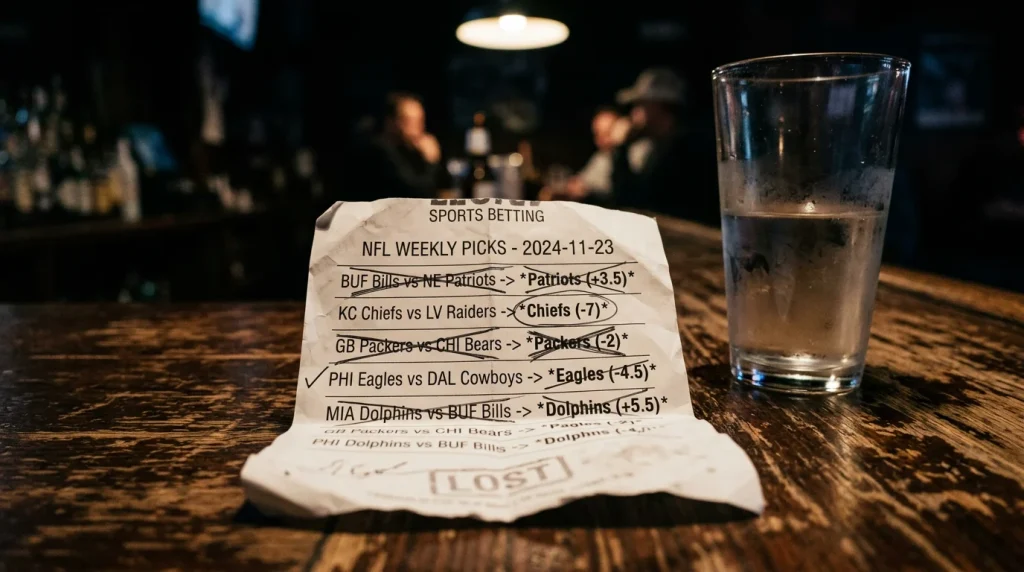 SPORTS BETTING
NFL WEEKLY PICKS - 2024-11-23
BUF Bills vs NE Patriots -> *Patriots (+3.5)*
KC Chiefs vs LV Raiders -> *Chiefs (-7)*
GB Packers vs CHI Bears -> *Packers (-2)*
PHI Eagles vs DAL Cowboys -> *Eagles (-4.5)*
MIA Dolphins vs BUF Bills -> *Dolphins (+5.5)*
GB Packers vs CHI Bears ->
PHI Dolphins vs BUF Bills -> *Dolphins
LOST